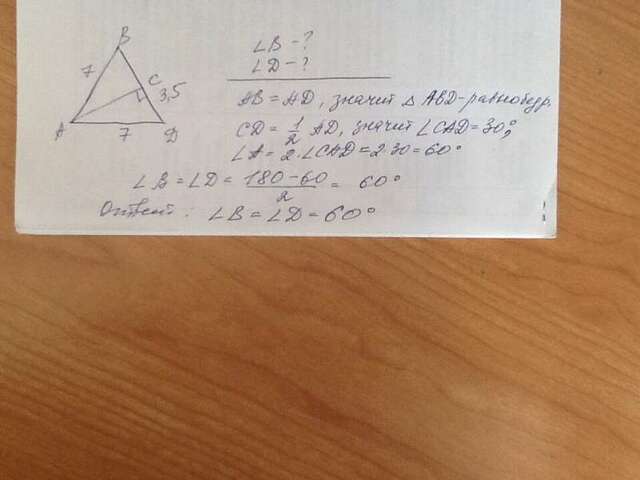 B
7
C
3,5
A
7
D
∠B - ?
∠D - ?
AB = AD, значит △ ABD - равнобедр.
CD = 1/2 AD, значит ∠CAD = 30°;
∠A = 2·∠CAD = 2·30 = 60°
∠B = ∠D = 180-60/2 = 60°
Ответ: ∠B = ∠D = 60°